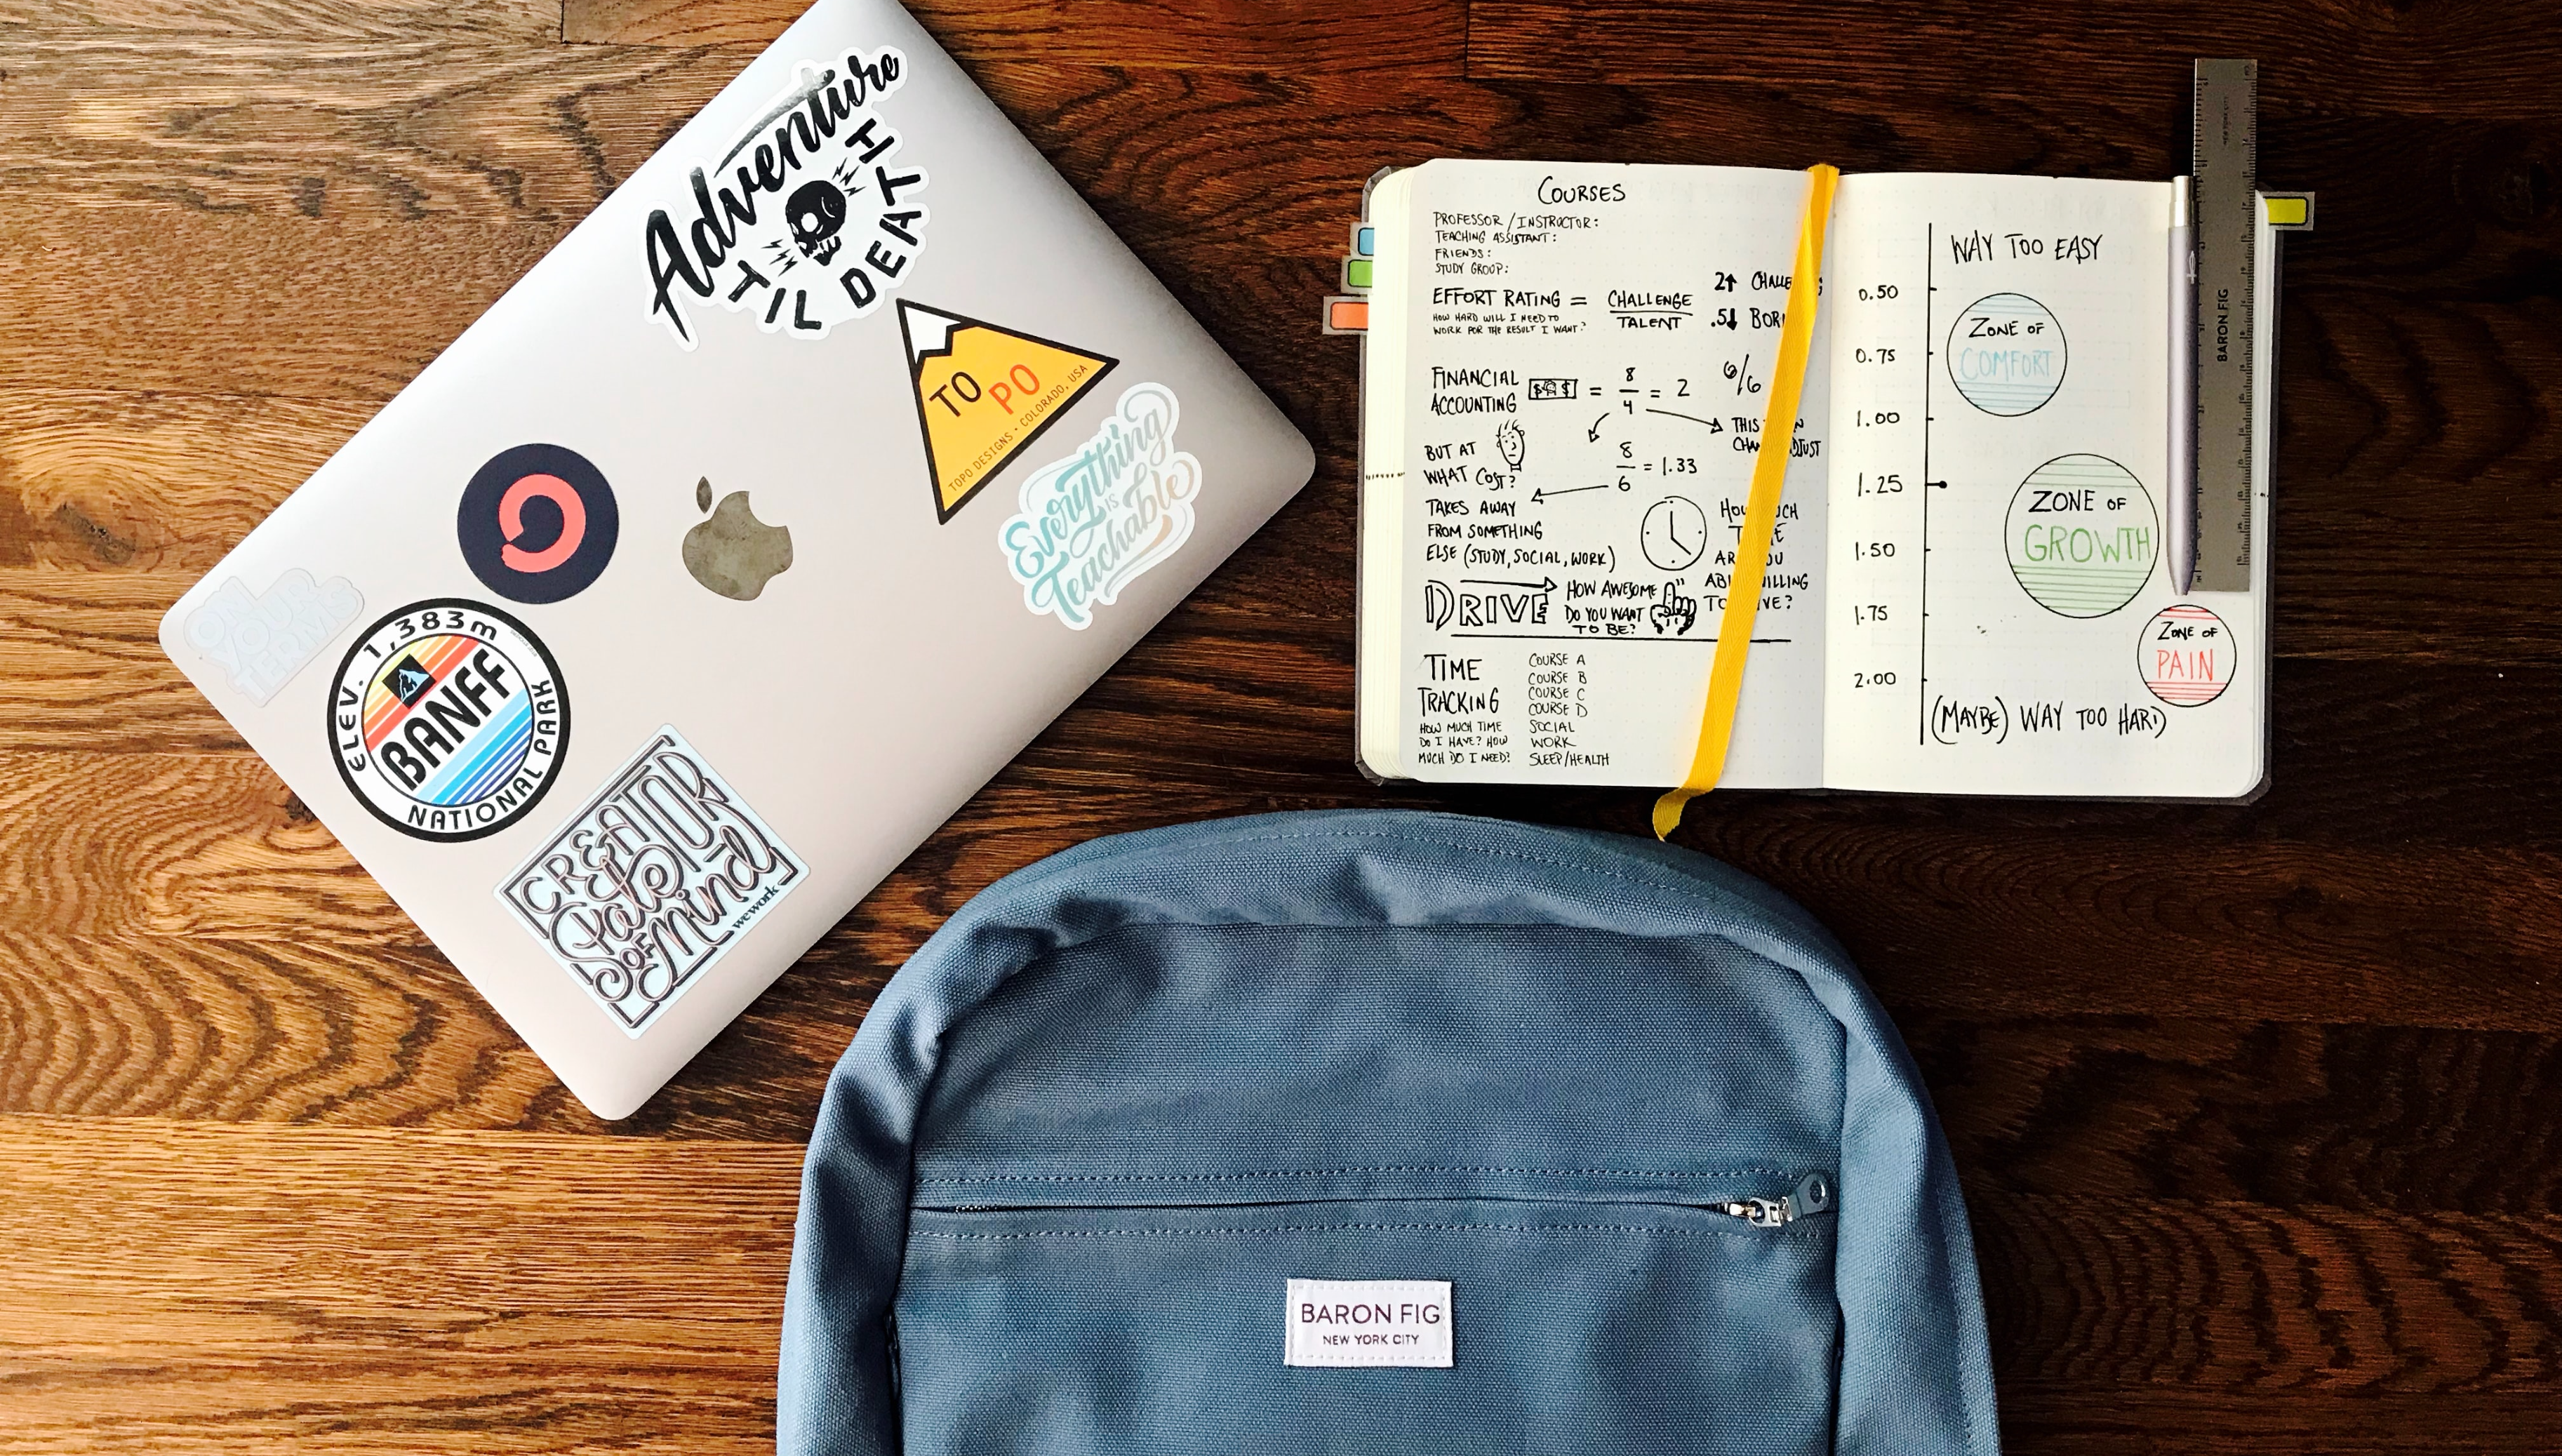 Adventure
TIL DEATH
TO PO
TOPO DESIGNS • COLORADO, USA
Everything
IS
Teachable
ON
YOUR
TERMS
ELEV. 1,383m
BANFF
NATIONAL PARK
CREATOR
State
OF
Mind
wework
COURSES
PROFESSOR/INSTRUCTOR:
TEACHING ASSISTANT:
FRIENDS:
STUDY GROUP:
EFFORT RATING = CHALLENGE
TALENT
HOW HARD WILL I NEED TO
WORK FOR THE RESULT I WANT?
2↑
.5↓
FINANCIAL
ACCOUNTING
$ $ = 8/4 = 2
6/6
THIS
BUT AT
WHAT COST?
8/6 = 1.33
TAKES AWAY
FROM SOMETHING
ELSE (STUDY, SOCIAL, WORK)
DRIVE
HOW AWESOME
DO YOU WANT
TO BE?
TIME
TRACKING
HOW MUCH TIME
DO I HAVE? HOW
MUCH DO I NEED?
COURSE A
COURSE B
COURSE C
COURSE D
SOCIAL
WORK
SLEEP/HEALTH
WAY TOO EASY
0.50
0.75
1.00
1.25
1.50
1.75
2.00
ZONE OF
COMFORT
ZONE OF
GROWTH
ZONE OF
PAIN
(MAYBE) WAY TOO HARD
BARON FIG
BARON FIG
NEW YORK CITY